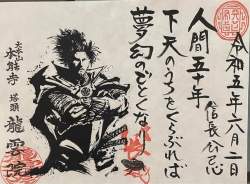 令和五年六月二日
信長公忌
人間五十年
下天のうちをくらぶれば
夢幻のごとくなり
大本山
永龍寺
塔頭
龍雲院